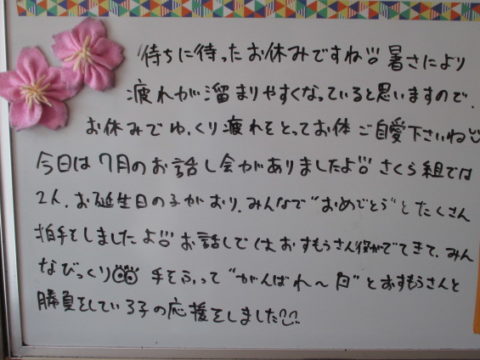 待ちに待ったお休みですね!! 暑さにより
疲れが溜まりやすくなっていると思いますので、
お休みでゆっくり疲れをとってお体ご自愛下さいね
今日は7月のお話し会がありましたよ!! さくら組では
2人、お誕生日の子がおり、みんなで"おめでとう"とたくさん
拍手をしましたよ!! お話しでは おすもうさん役がでてきて、みん
なびっくり 手をふって"がんばれ〜"とおすもうさんと
勝負をしている子の応援をしました!!